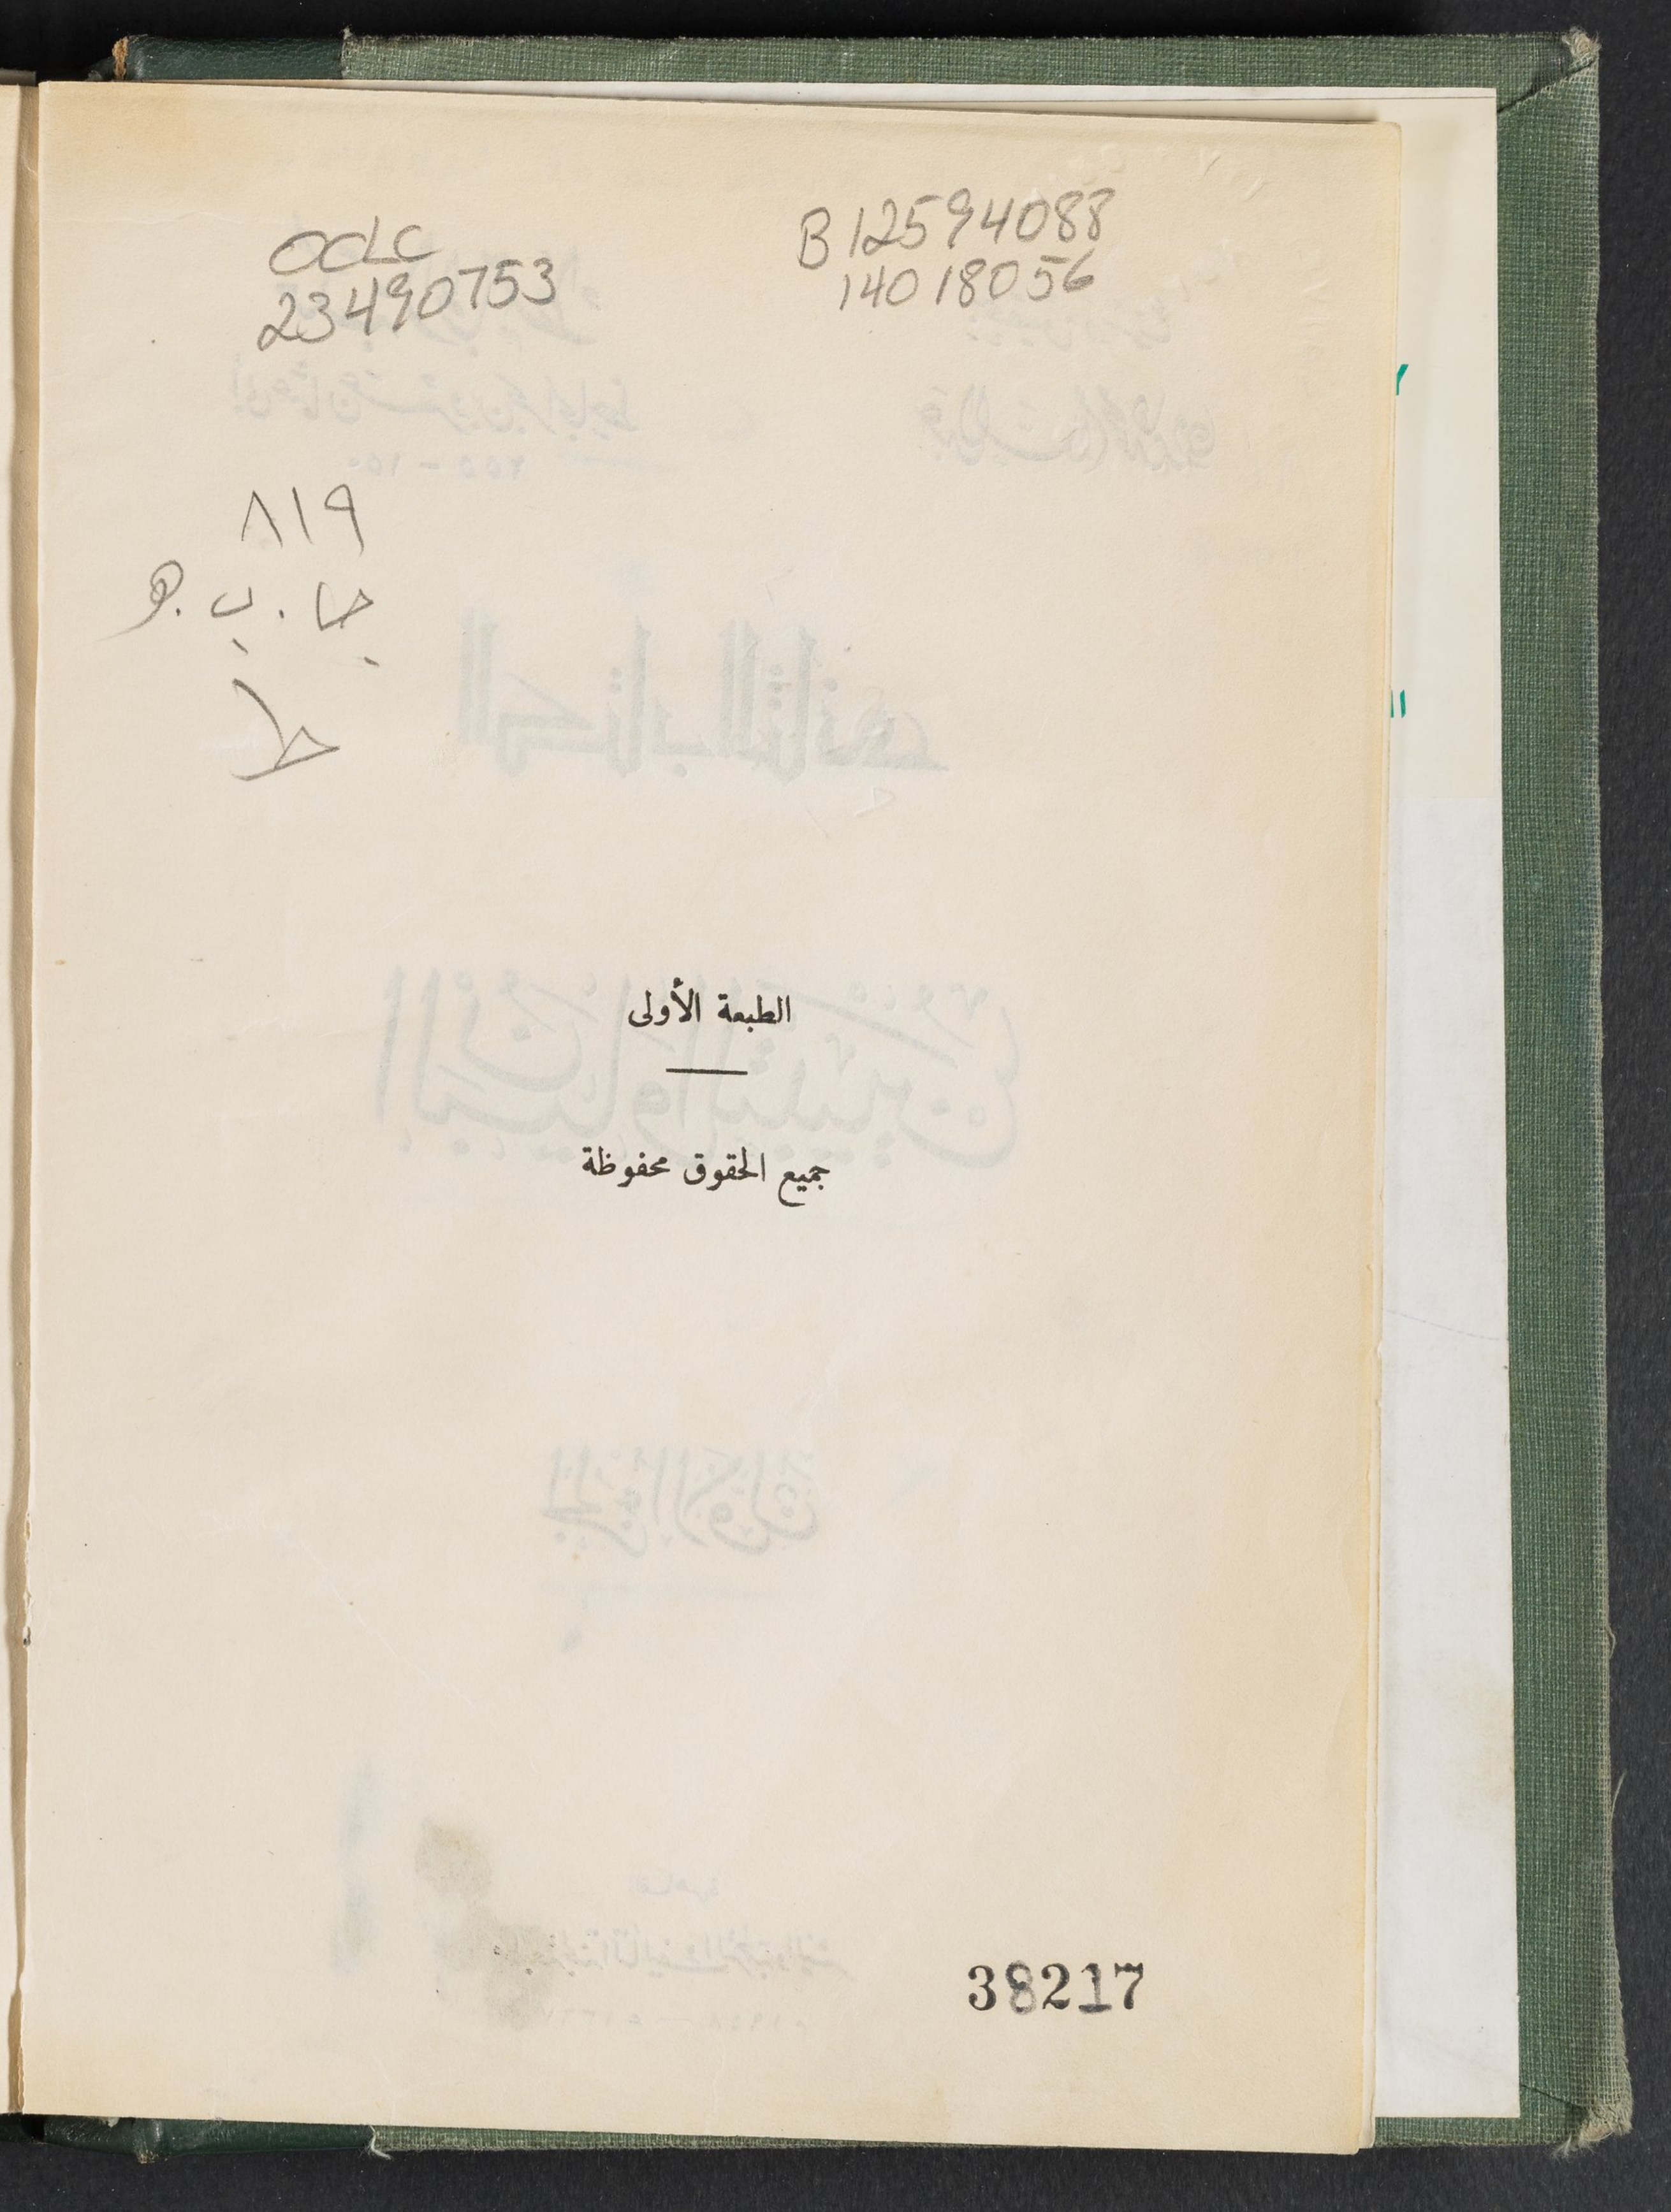 OCLC
23490753
B12594088
14018056
٨١٩
جا . ب . ه
ط
الطبعة الأولى
جميع الحقوق محفوظة
38217